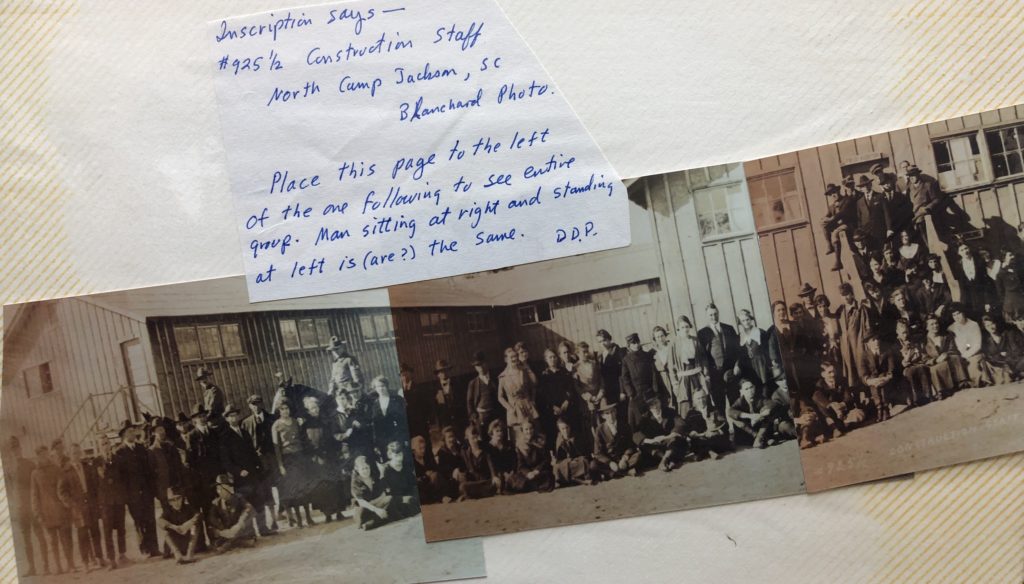 Inscription says —
#925½ Construction Staff
North Camp Jackson, SC
Blanchard Photo.
Place this page to the left
of the one following to see entire
group. Man sitting at right and standing
at left is (are?) the same. D.D.P.
#925½ CONSTRUCTION STA